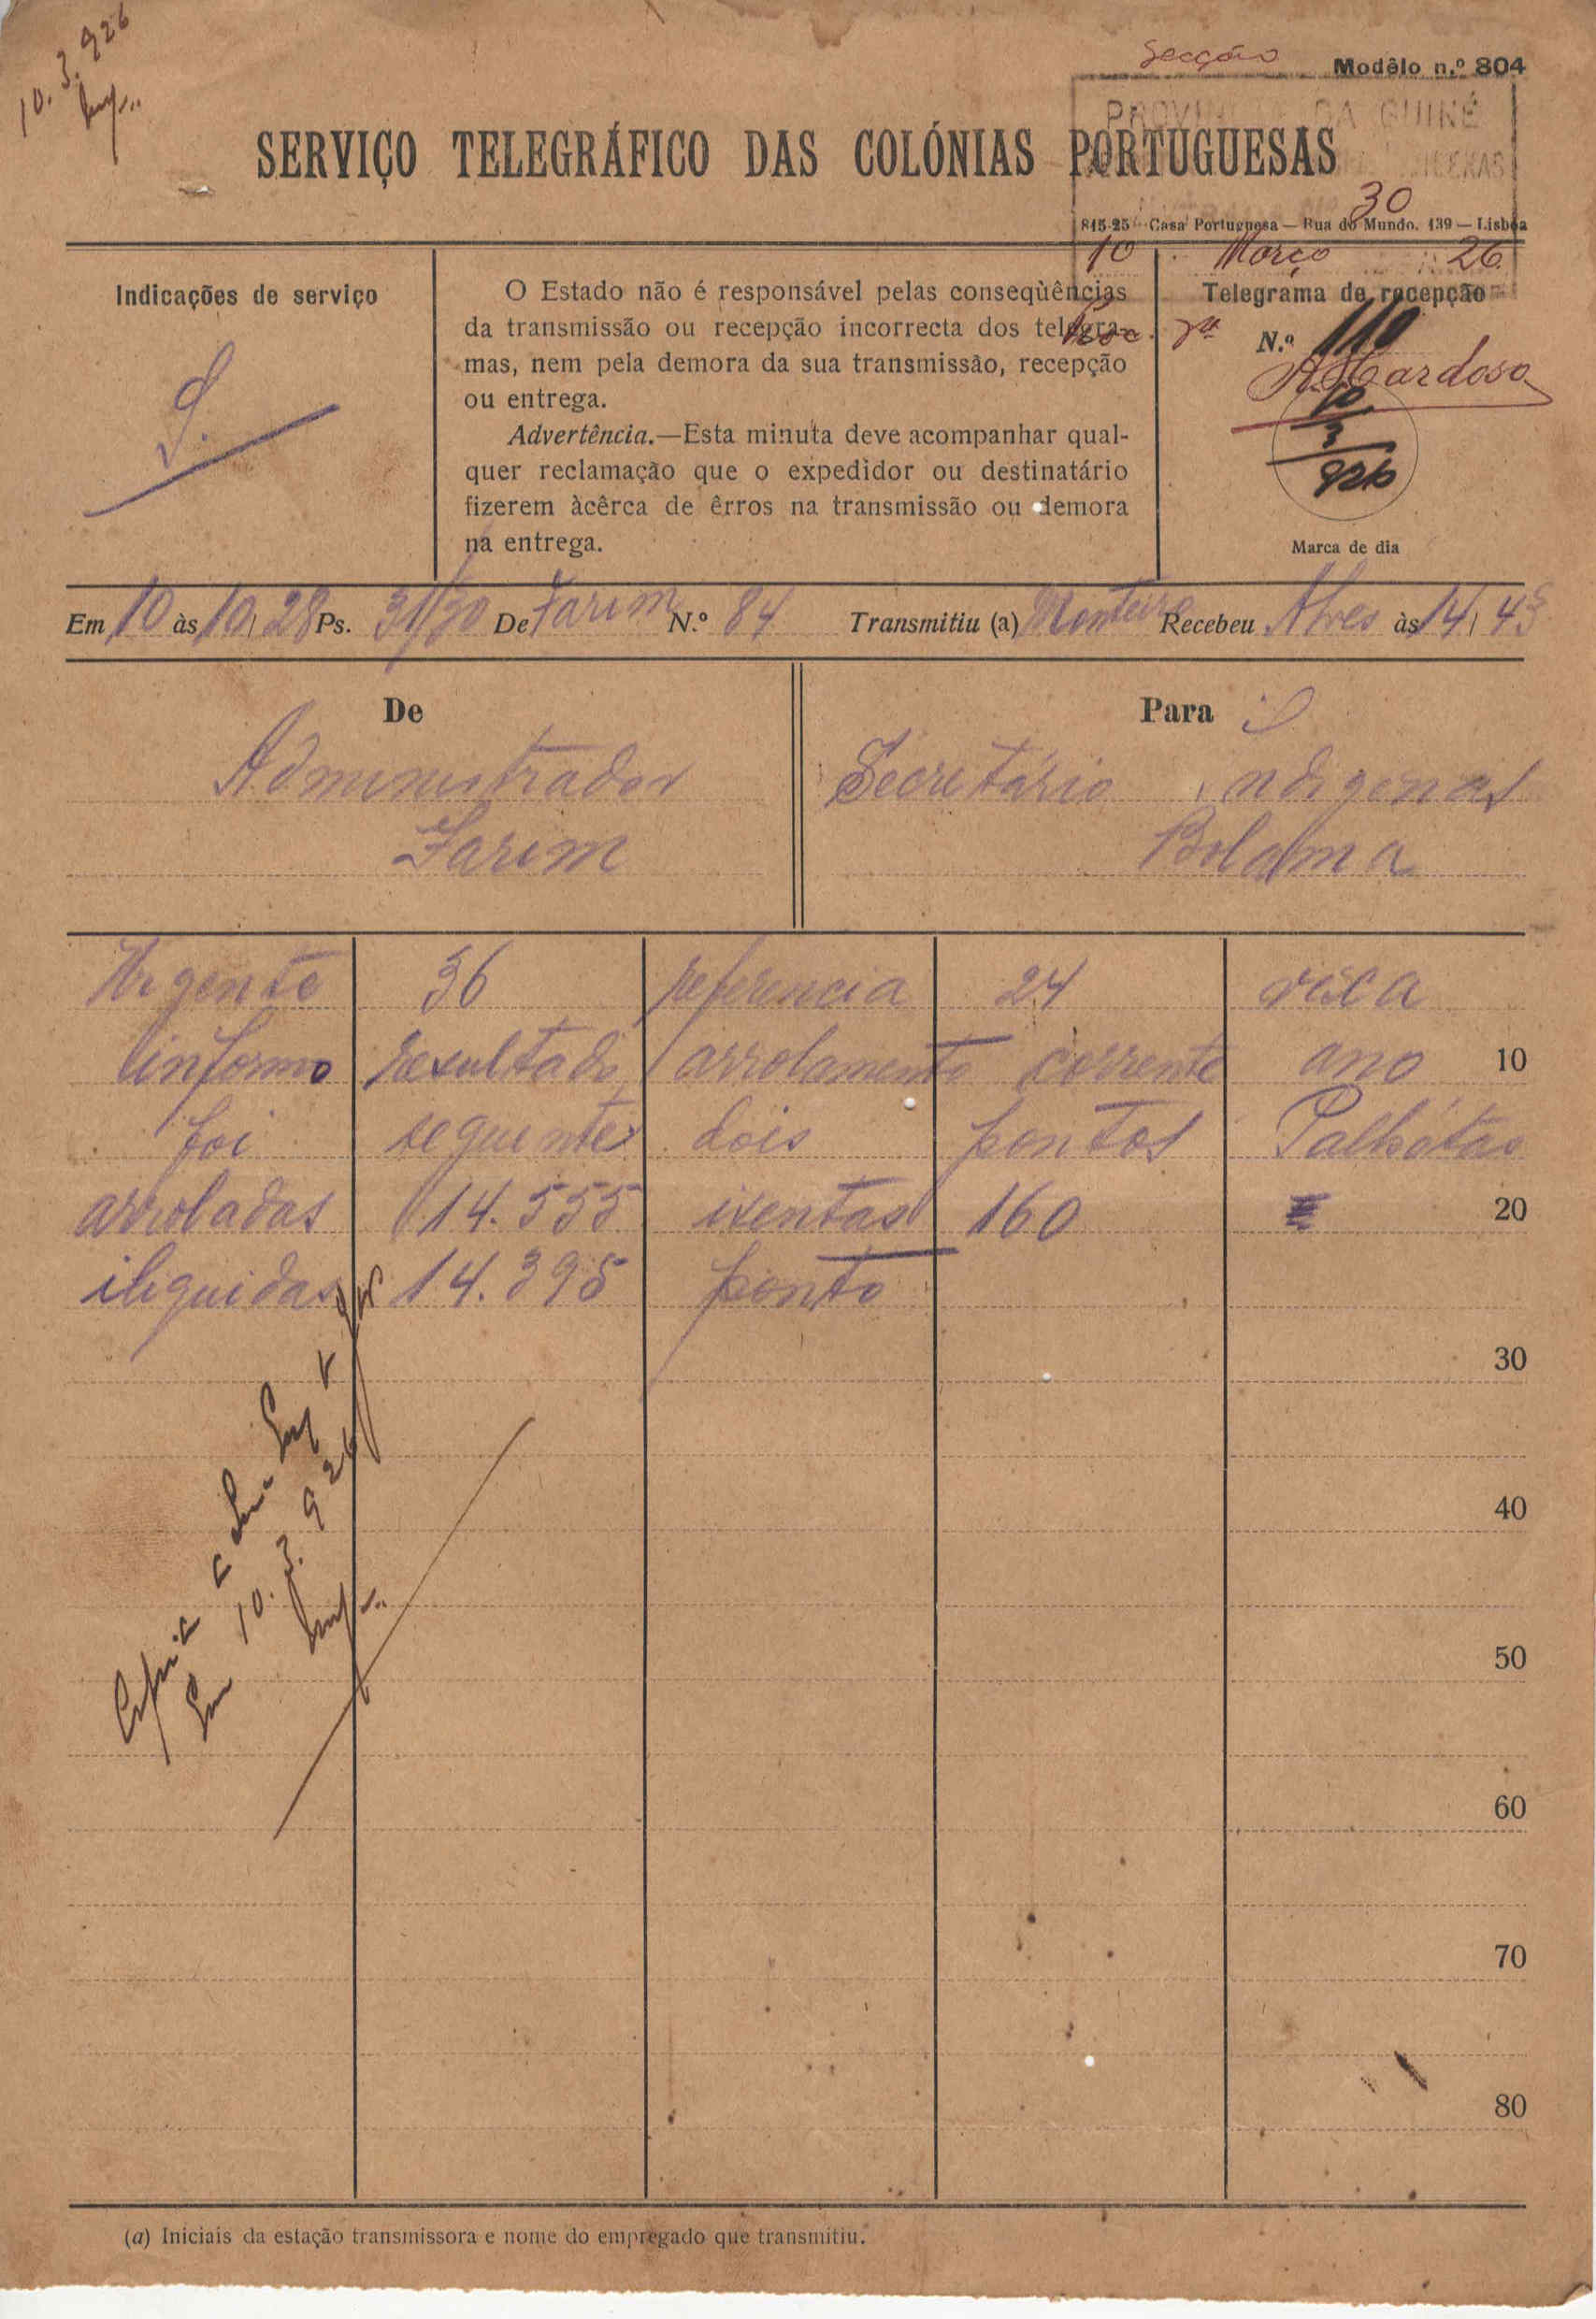 10.3.926
Secção
Modêlo n.º 804
PROVINCIA DA GUINÉ
SERVIÇO TELEGRÁFICO DAS COLÓNIAS PORTUGUESAS
30
815-25 — Casa Portuguesa — Rua do Mundo, 139 — Lisboa
10 Março 26
Indicações de serviço
S.
O Estado não é responsável pelas conseqùências
da transmissão ou recepção incorrecta dos telegra-
mas, nem pela demora da sua transmissão, recepção
ou entrega.
Advertência.—Esta minuta deve acompanhar qual-
quer reclamação que o expedidor ou destinatário
fizerem àcêrca de êrros na transmissão ou demora
na entrega.
Telegrama de recepção
N.º 110
Cardoso
10
3
926
Marca de dia
Em 10 às 10,28 Ps. 31/30 De Farim N.º 84 Transmitiu (a) Monteiro Recebeu Alves às 14,45
De
Administrador
Farim
Para
Secretário indigenas
Bolama
Urgente 36 referencia 24 vexa
informo resultado arrolamento corrente ano 10
foi seguinte dois pontos Palhotas
arroladas 14.555 isentas 160 20
iliquidas 14.395 ponto
30
40
50
60
70
80
Copia
10.3.926
(a) Iniciais da estação transmissora e nome do empregado que transmitiu.